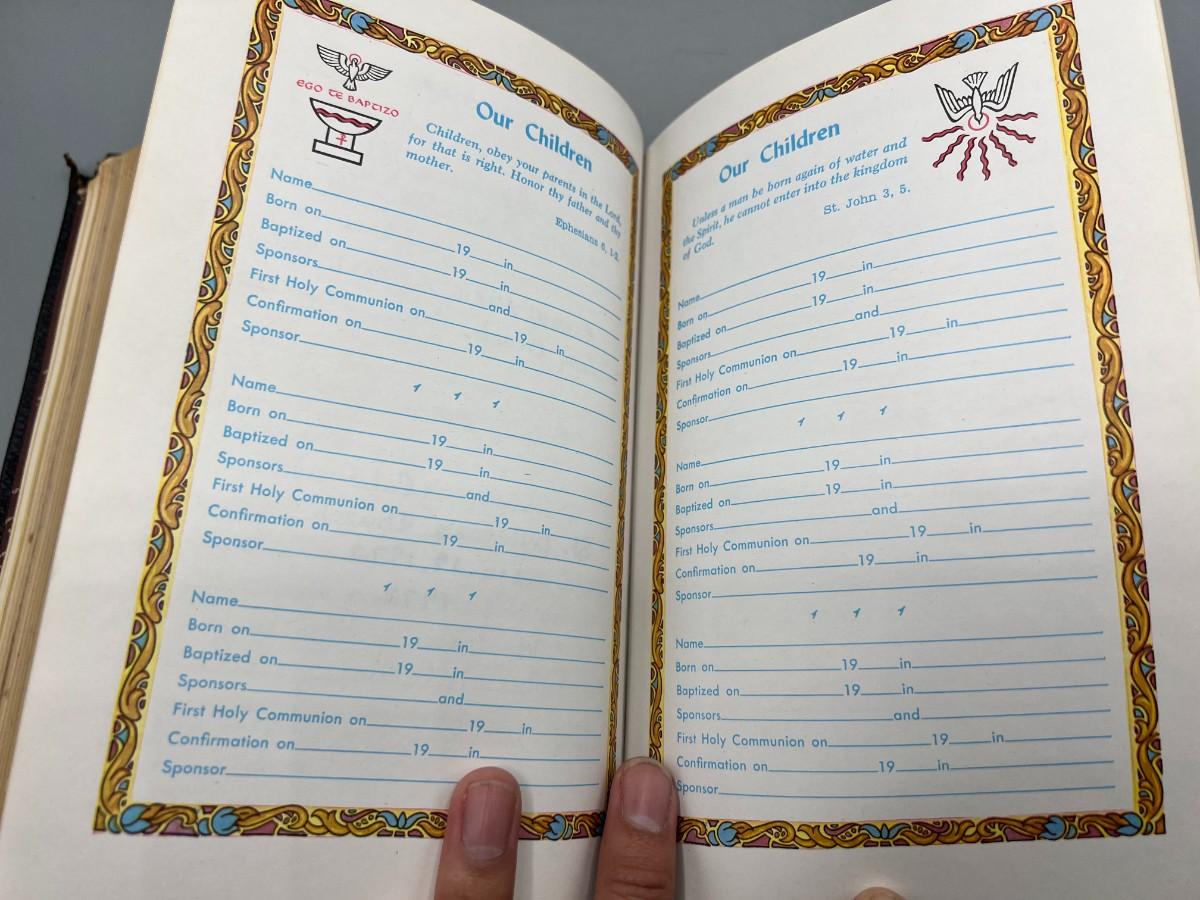 EGO TE BAPTIZO
Our Children
Children, obey your parents in the Lord,
for that is right. Honor thy father and thy
mother.
Ephesians 6, 1-2.
Name
Born on 19 in
Baptized on 19 in
Sponsors and
First Holy Communion on 19 in
Confirmation on 19 in
Sponsor
Name
Born on 19 in
Baptized on 19 in
Sponsors and
First Holy Communion on 19 in
Confirmation on 19 in
Sponsor
Name
Born on 19 in
Baptized on 19 in
Sponsors and
First Holy Communion on 19 in
Confirmation on 19 in
Sponsor
Our Children
Unless a man be born again of water and
the Spirit, he cannot enter into the kingdom
of God.
St. John 3, 5.
Name
Born on 19 in
Baptized on 19 in
Sponsors and
First Holy Communion on 19 in
Confirmation on 19 in
Sponsor
Name
Born on 19 in
Baptized on 19 in
Sponsors and
First Holy Communion on 19 in
Confirmation on 19 in
Sponsor
Name
Born on 19 in
Baptized on 19 in
Sponsors and
First Holy Communion on 19 in
Confirmation on 19 in
Sponsor